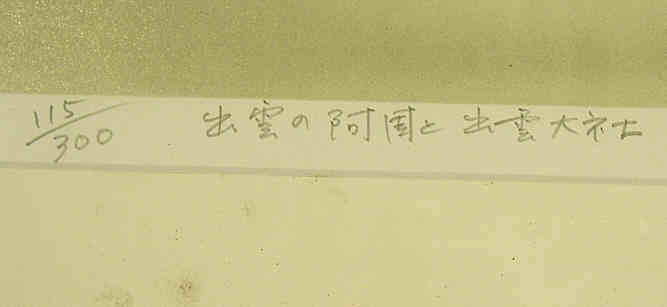 115/300 出雲の阿国と出雲大社